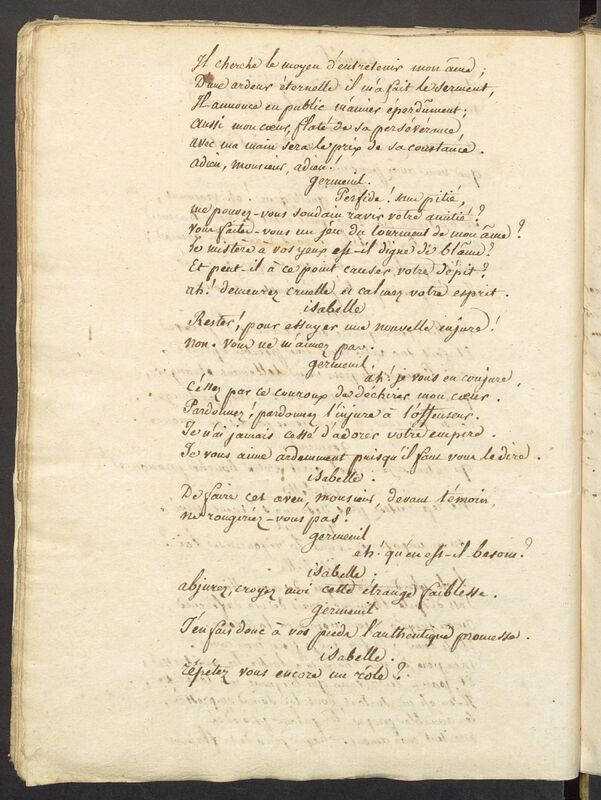 Il cherche le moyen d'entretenir mon âme ;
D'une ardeur éternelle il m'a fait le serment,
Il annonce en public m'aimer éperdûment ;
aussi mon cœur, flaté de sa persévérance,
avec ma main sera le prix de sa constance.
adieu, monsieur, adieu !
germeuil.
Perfide ! sans pitié,
me pouvez-vous soudain ravir votre amitié ?
vous faites-vous un jeu du tourment de mon âme ?
Ce mistère à vos yeux est-il digne de blâme ?
Et peut-il à ce point causer votre dépit ?
ah ! demeurez cruelle et calmez votre esprit.
isabelle
Rester ! pour essuyer une nouvelle injure !
non. vous ne m'aimez pas.
germeuil.
ah. je vous en conjure,
Cessez par ce couroux de déchirer mon cœur.
Pardonnez ! pardonnez l'injure à l'offenseur.
Je n'ai jamais cessé d'adorer votre empire.
Je vous aime ardemment puisqu'il faut vous le dire.
isabelle.
De faire cet aveu, monsieur, devant témoin,
ne rougiriez-vous pas ?
germeuil
eh. qu'en est-il besoin ?
isabelle.
abjurez, croyez moi cette étrange faiblesse.
germeuil
J'en fais donc à vos pieds l'authentique promesse.
isabelle.
répétez vous encore un rôle ?